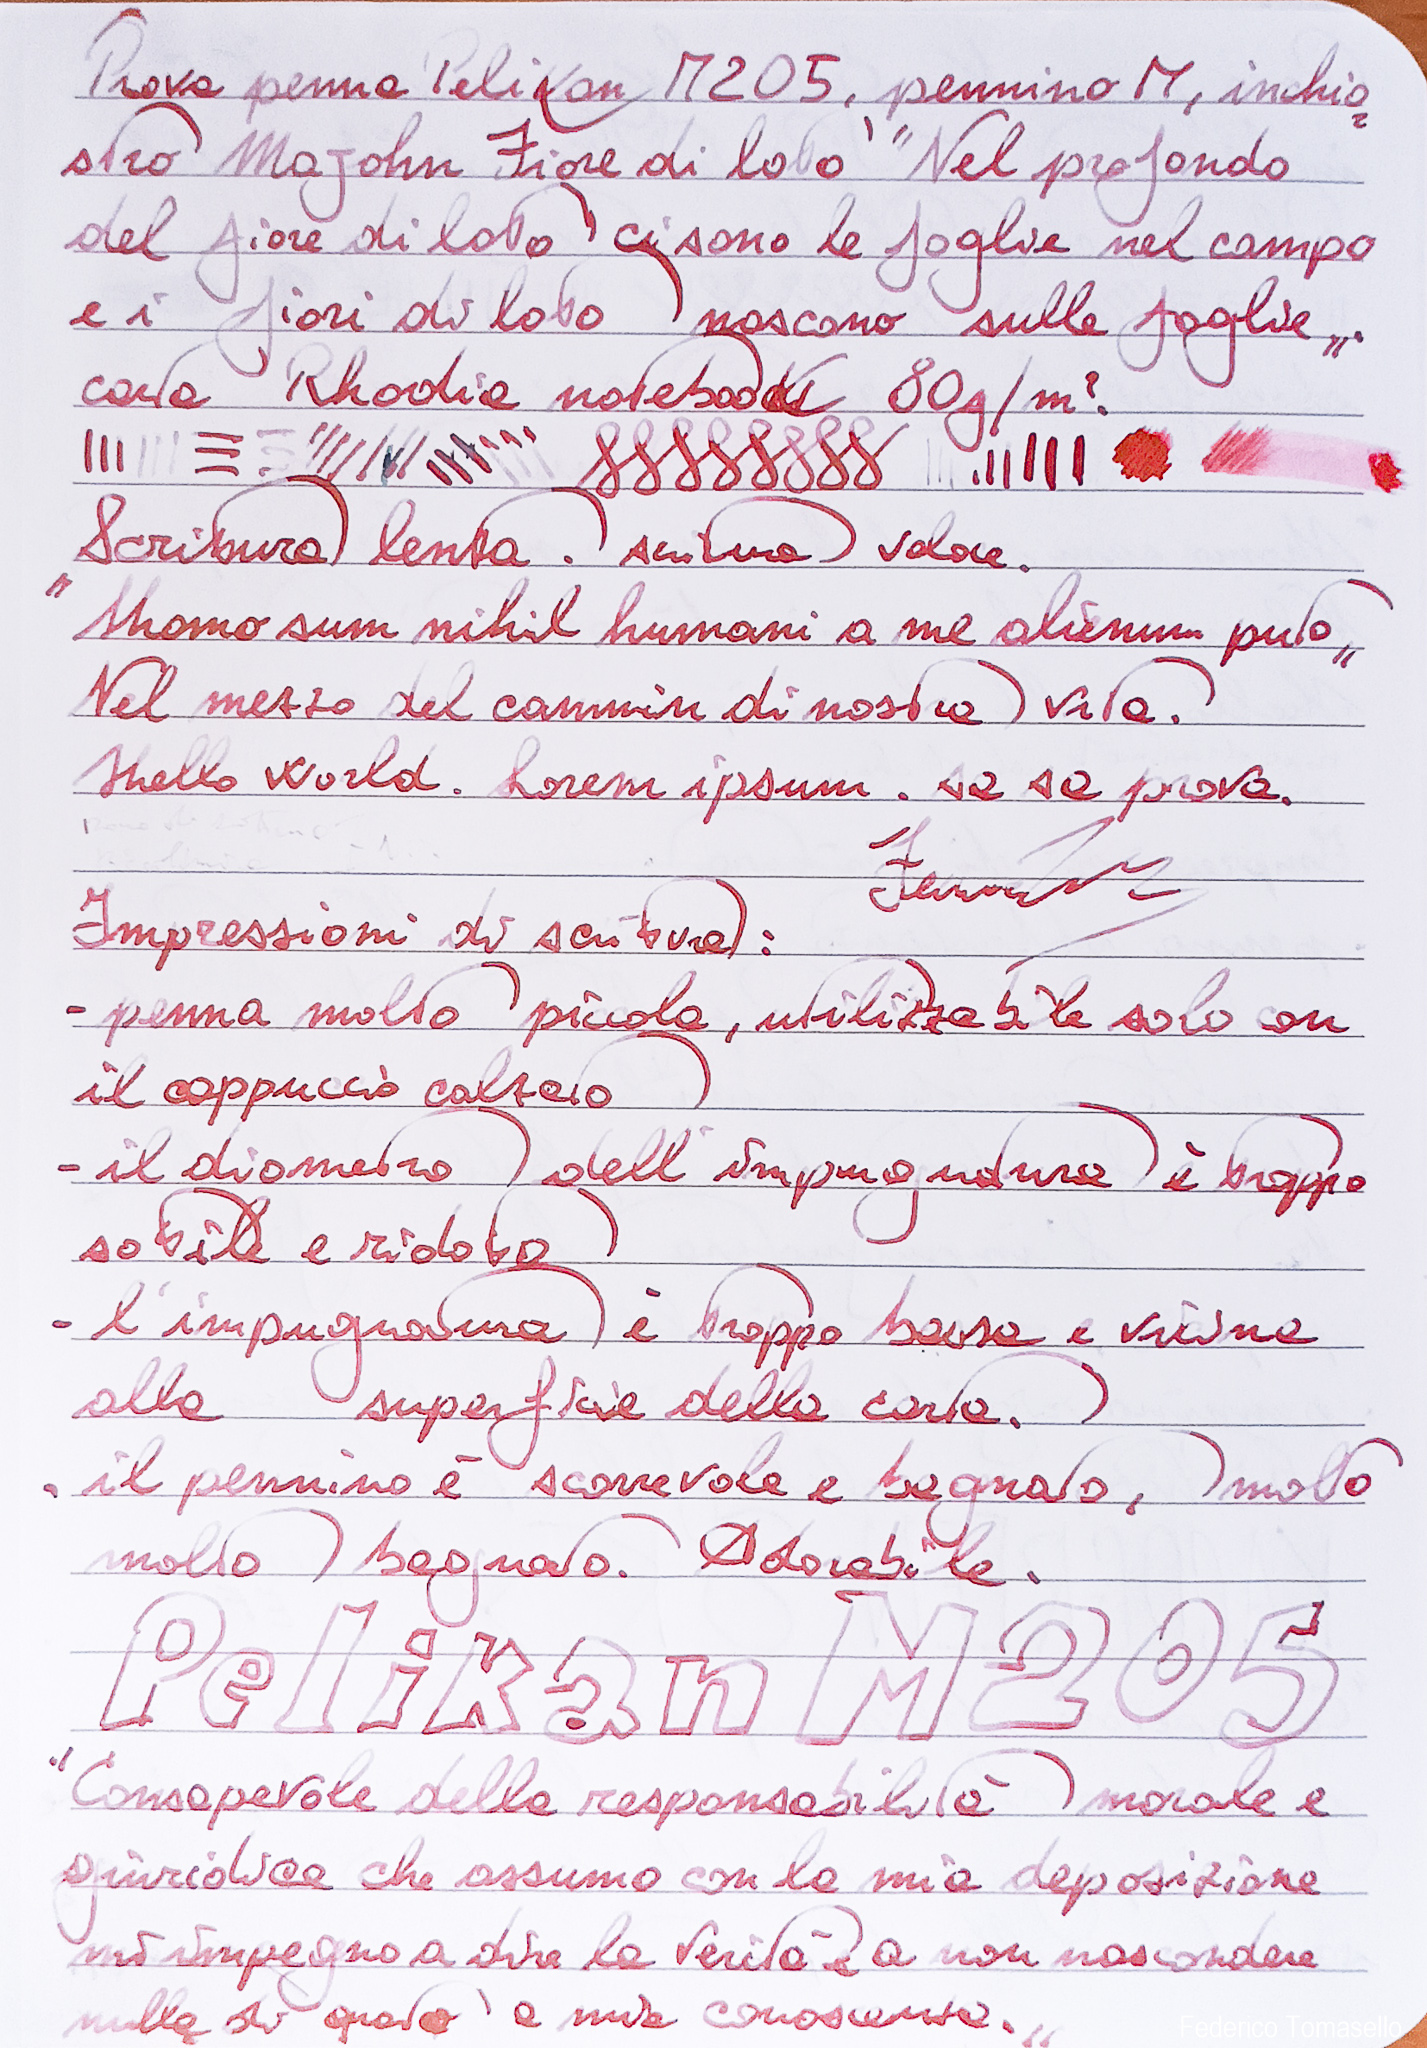 Prova penna Pelikan M205, pennino M, inchio
stro Majohn Fiore di loto "Nel profondo
del fiore di loto ci sono le foglie nel campo
e i fiori di loto nascono sulle foglie".
carta Rhodia notebook 80g/m².
Scrittura lenta. scrittura veloce.
"Homo sum nihil humani a me alienum puto"
Nel mezzo del cammin di nostra vita.
Hello world. Lorem ipsum. sa sa prova.
Impressioni di scrittura:
- penna molto piccola, utilizzabile solo con
il cappuccio calzato
- il diametro dell'impugnatura è troppo
sottile e ridotto
- l'impugnatura è troppo bassa e vicina
alla superficie della carta.
- il pennino è scorrevole e bagnato, molto
molto bagnato. Adorabile.
Pelikan M205
"Consapevole della responsabilità morale e
giuridica che assumo con la mia deposizione
mi impegno a dire la verità e a non nascondere
nulla di quanto a mia conoscenza."
Federico Tomasello